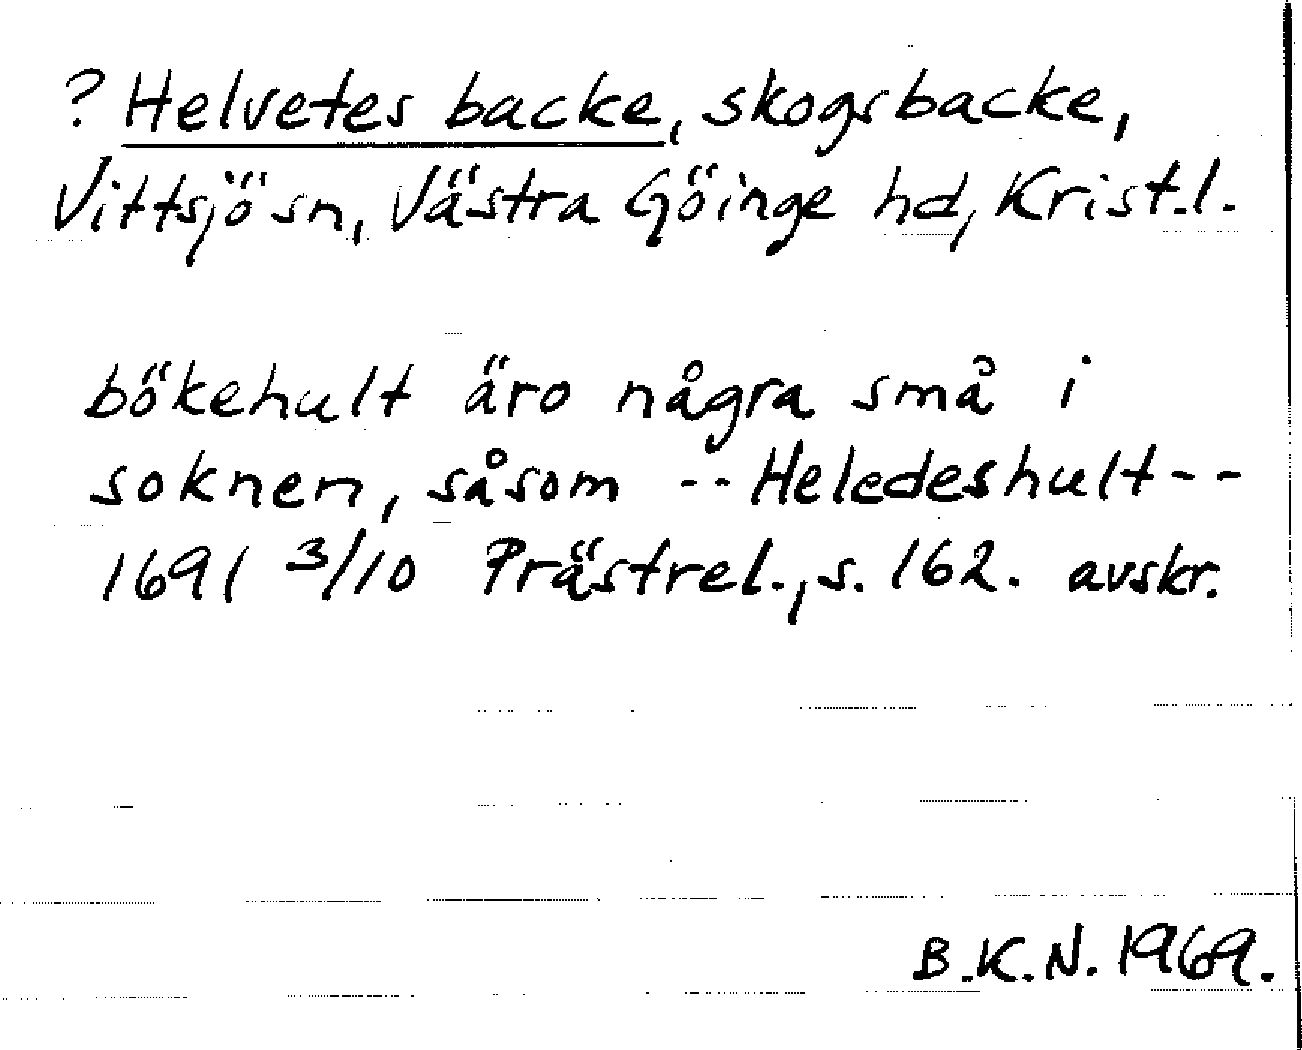 ? Helvetes backe, skogsbacke,
Vittsjö sn, Västra Göinge hd, Krist.l.
bökehult äro några små i
soknen, såsom -- Heledeshult --
1691 3/10 Prästrel., s. 162. avskr.
B.K.N. 1969.